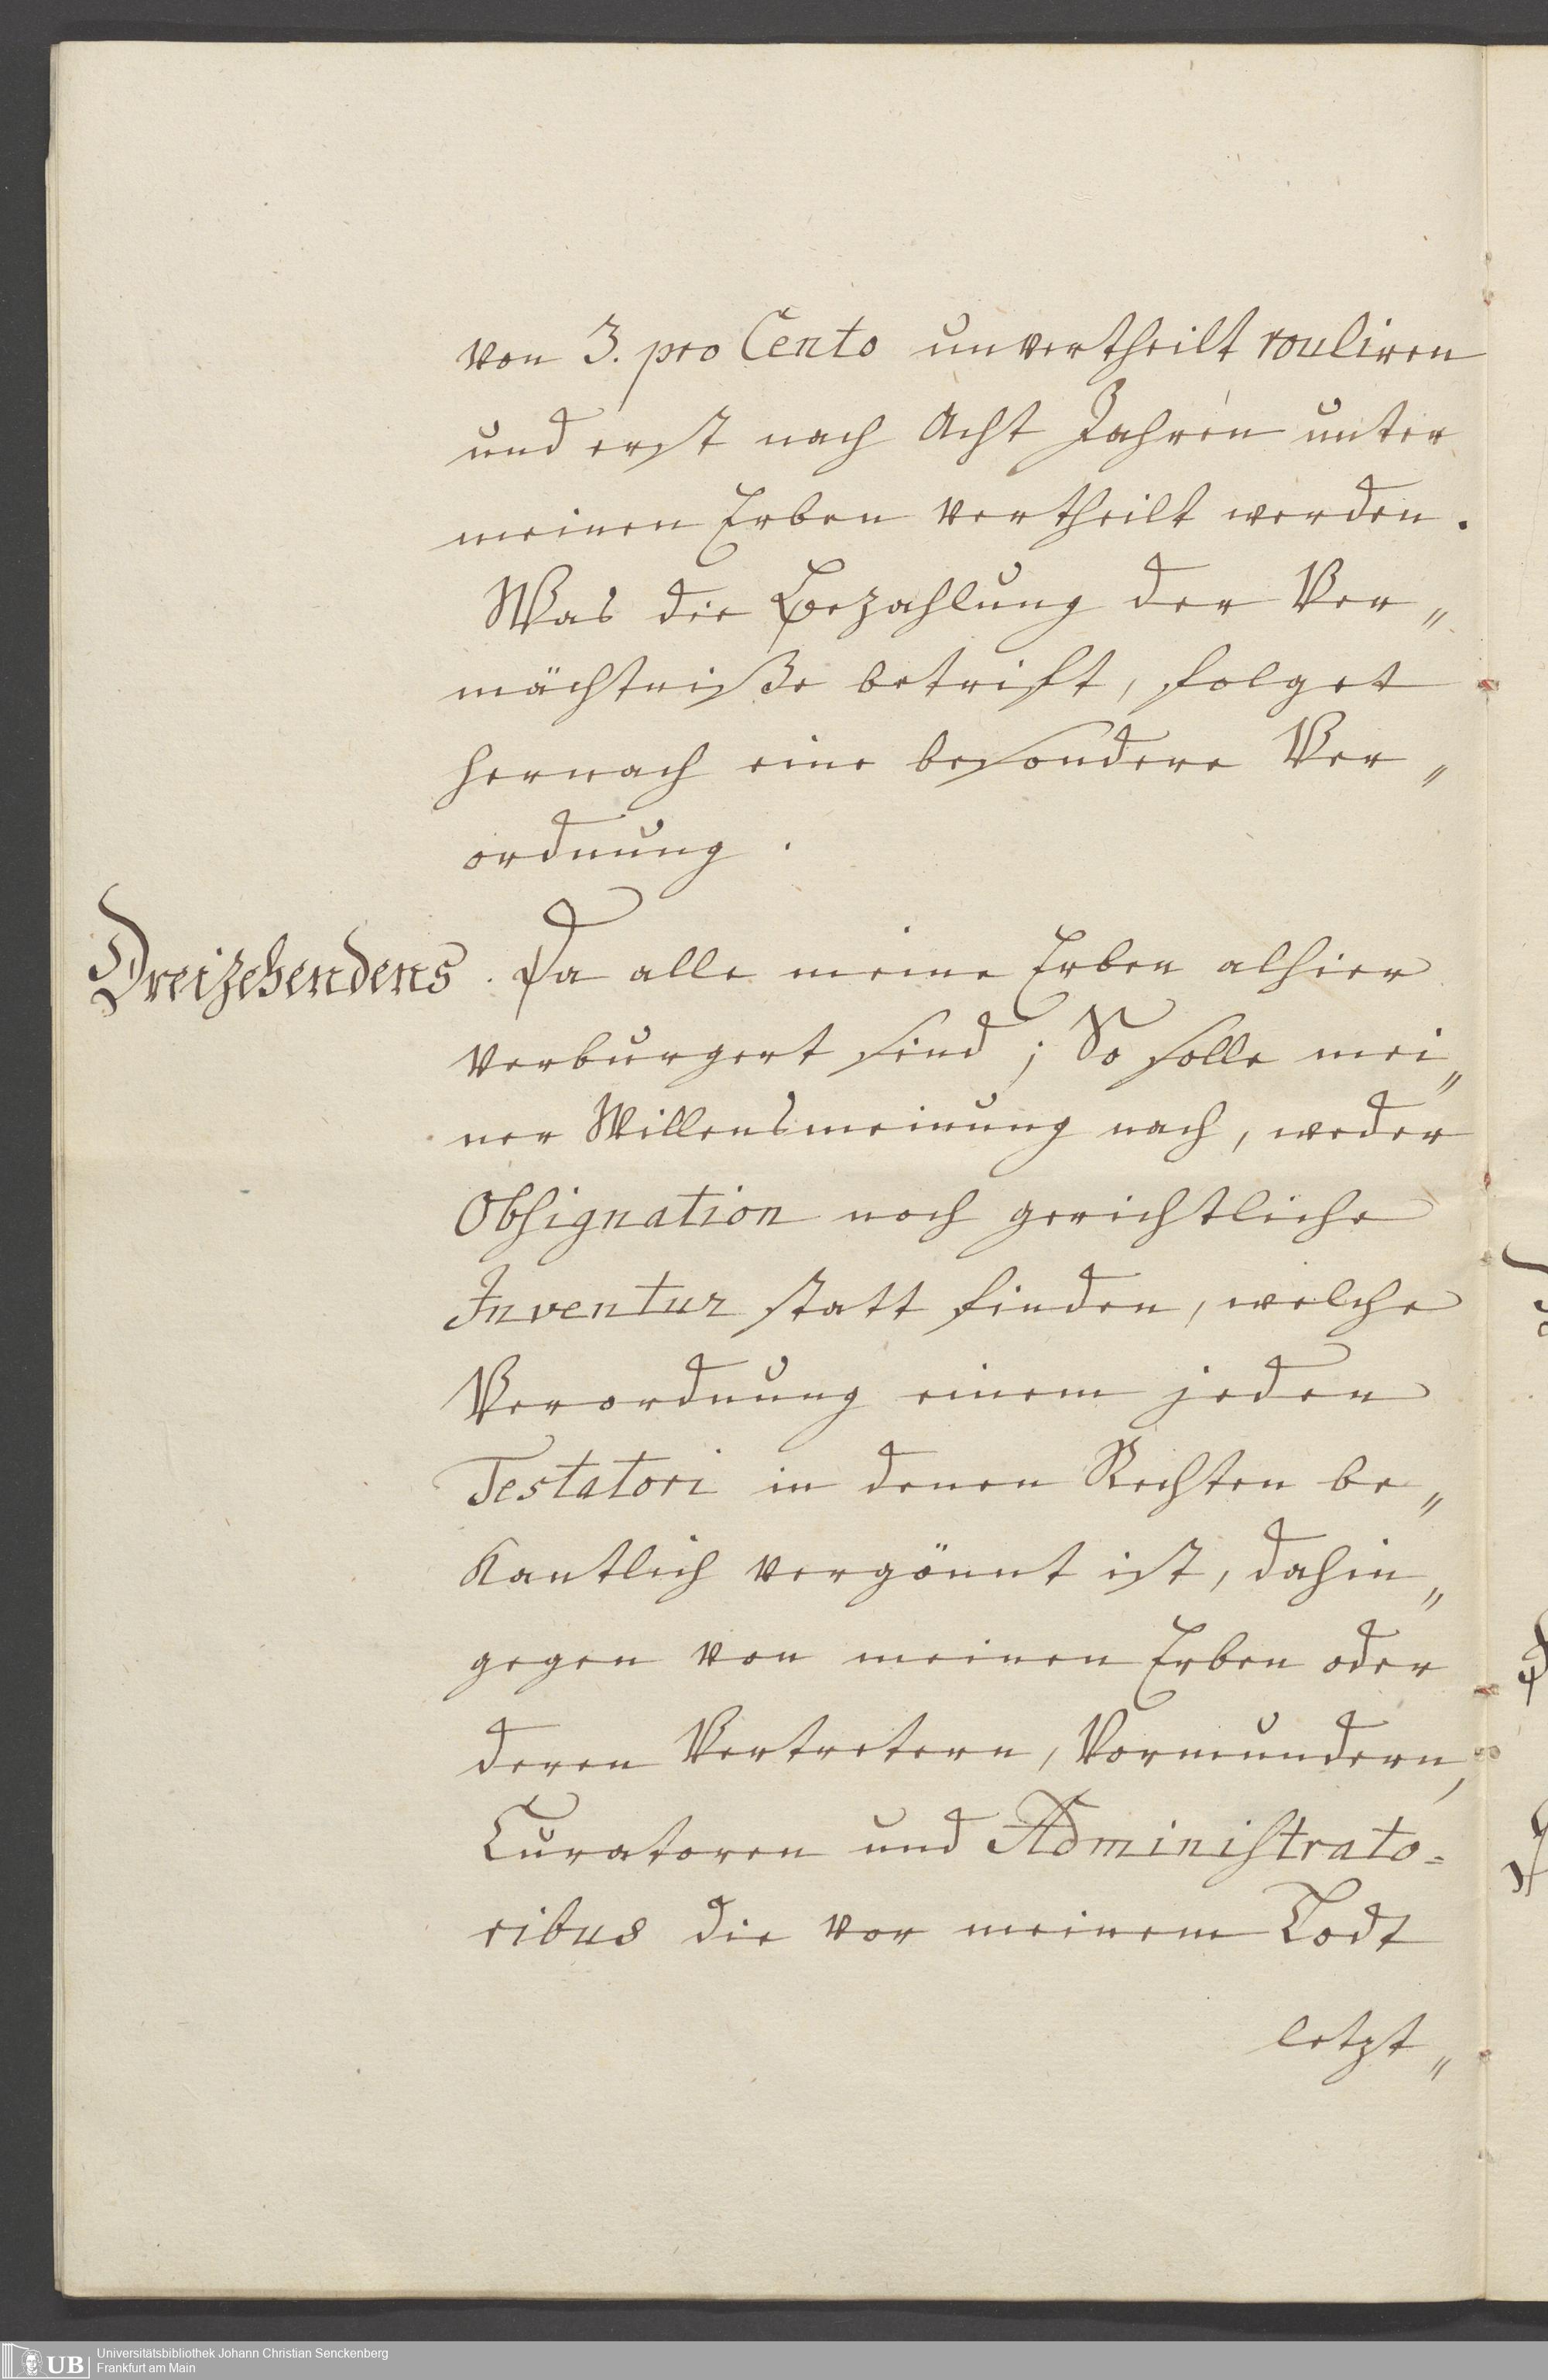 von 3. pro Cento unvertheilt rouliren
und erst nach Acht Jahren unter
meinen Erben vertheilt werden.
Was die Bezahlung der Ver„
mächtniße betrift, folget
hernach eine besondere Ver„
ordnung.
Dreizehendens. Da alle meine Erben alhier
verburgert sind; So solle mei„
ner Willensmeinung nach, weder
Obsignation noch gerichtliche
Inventur statt finden, welche
Verordnung einem jeden
Testatori in denen Rechten be„
kantlich vergönnt ist, dahin„
gegen von meinen Erben oder
deren Vertretern, Vormundern,
Curatoren und Administrato=
ribus die vor meinem Todt
letzt„
UB
Universitätsbibliothek Johann Christian Senckenberg
Frankfurt am Main